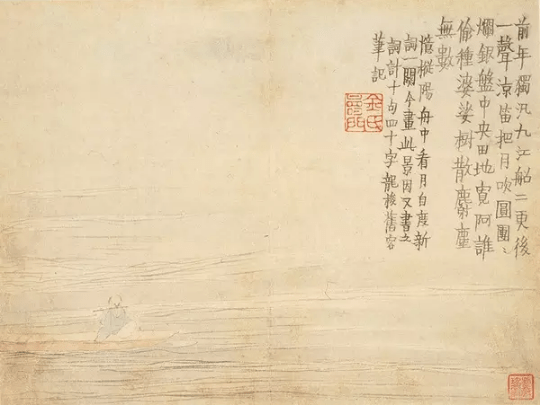 前年獨汎九江船二更後
一聲涼笛把月吹圓團〻
爛銀盤中央田地寬阿誰
偷種婆娑樹散麝塵
無數
樅陽舟中看月自度新
詞一闋今畫此景因又書之
詞計十句四十字龍梭舊客
筆記
金氏壽門